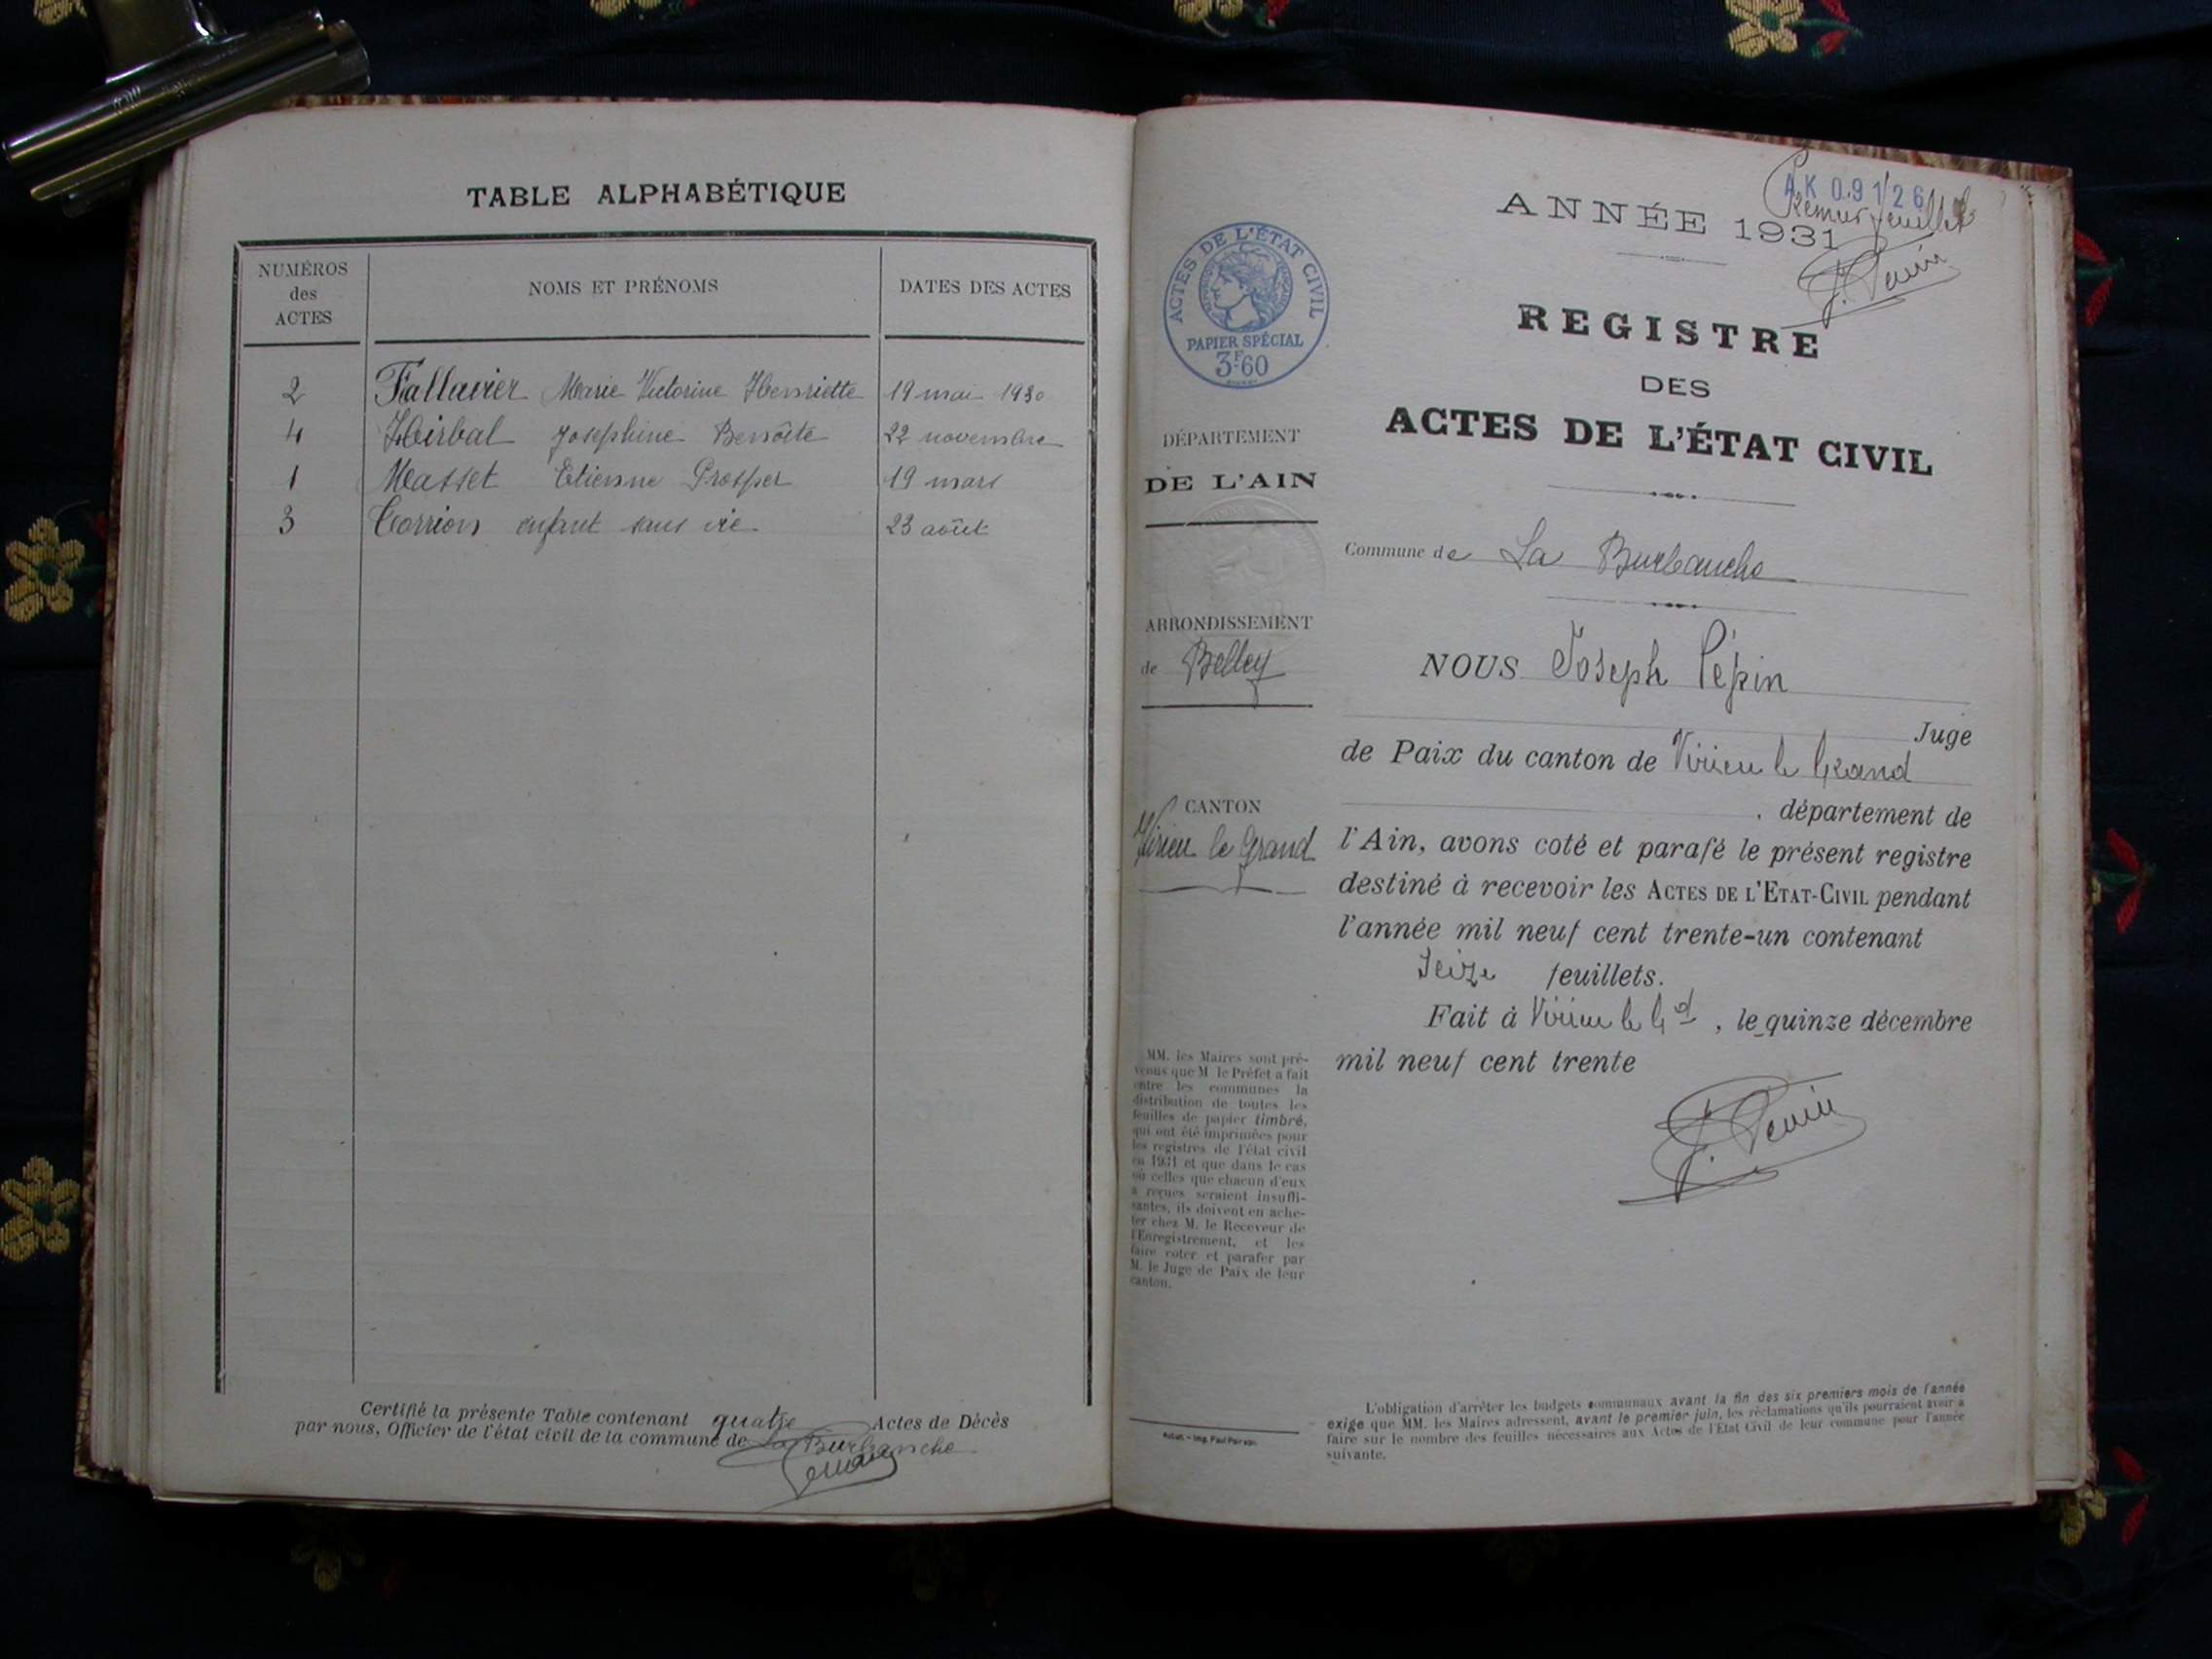 TABLE ALPHABÉTIQUE
NUMÉROS des ACTES
NOMS ET PRÉNOMS
DATES DES ACTES
2 Fallavier Marie Victorine Henriette 19 mai 1930
4 Hirbal Josephine Benoîte 22 novembre
1 Masset Etienne Prosper 19 mars
3 enfant sans vie 23 août
Certifié la présente Table contenant quatre Actes de Décès
par nous, Officier de l'état civil de la commune de La Burbanche
AK 09126
Premier feuillet
J. Pépin
ANNÉE 1931
ACTES DE L'ÉTAT CIVIL
PAPIER SPÉCIAL
3F60
REGISTRE
DES
ACTES DE L'ÉTAT CIVIL
DÉPARTEMENT
DE L'AIN
Commune de La Burbanche
ARRONDISSEMENT
de Belley
NOUS Joseph Pépin
Juge
de Paix du canton de Virieu le Grand
, département de
CANTON
Virieu le Grand
l'Ain, avons coté et parafé le présent registre
destiné à recevoir les ACTES DE L'ETAT-CIVIL pendant
l'année mil neuf cent trente-un contenant
Seize feuillets.
Fait à Virieu le Gd, le quinze décembre
mil neuf cent trente
J. Pépin
MM. les Maires sont pré-
venus que M le Préfet a fait
entre les communes la
distribution de toutes les
feuilles de papier timbré,
qui ont été imprimées pour
les registres de l'état civil
en 1931 et que dans le cas
où celles que chacun d'eux
a reçues seraient insuffi-
santes, ils doivent en ache-
ter chez M. le Receveur de
l'Enregistrement, et les
faire coter et parafer par
M. le Juge de Paix de leur
canton.
L'obligation d'arrêter les budgets communaux avant la fin des six premiers mois de l'année
exige que MM. les Maires adressent, avant le premier juin, les réclamations qu'ils pourraient avoir à
faire sur le nombre des feuilles nécessaires aux Actes de l'Etat Civil de leur commune pour l'année
suivante.